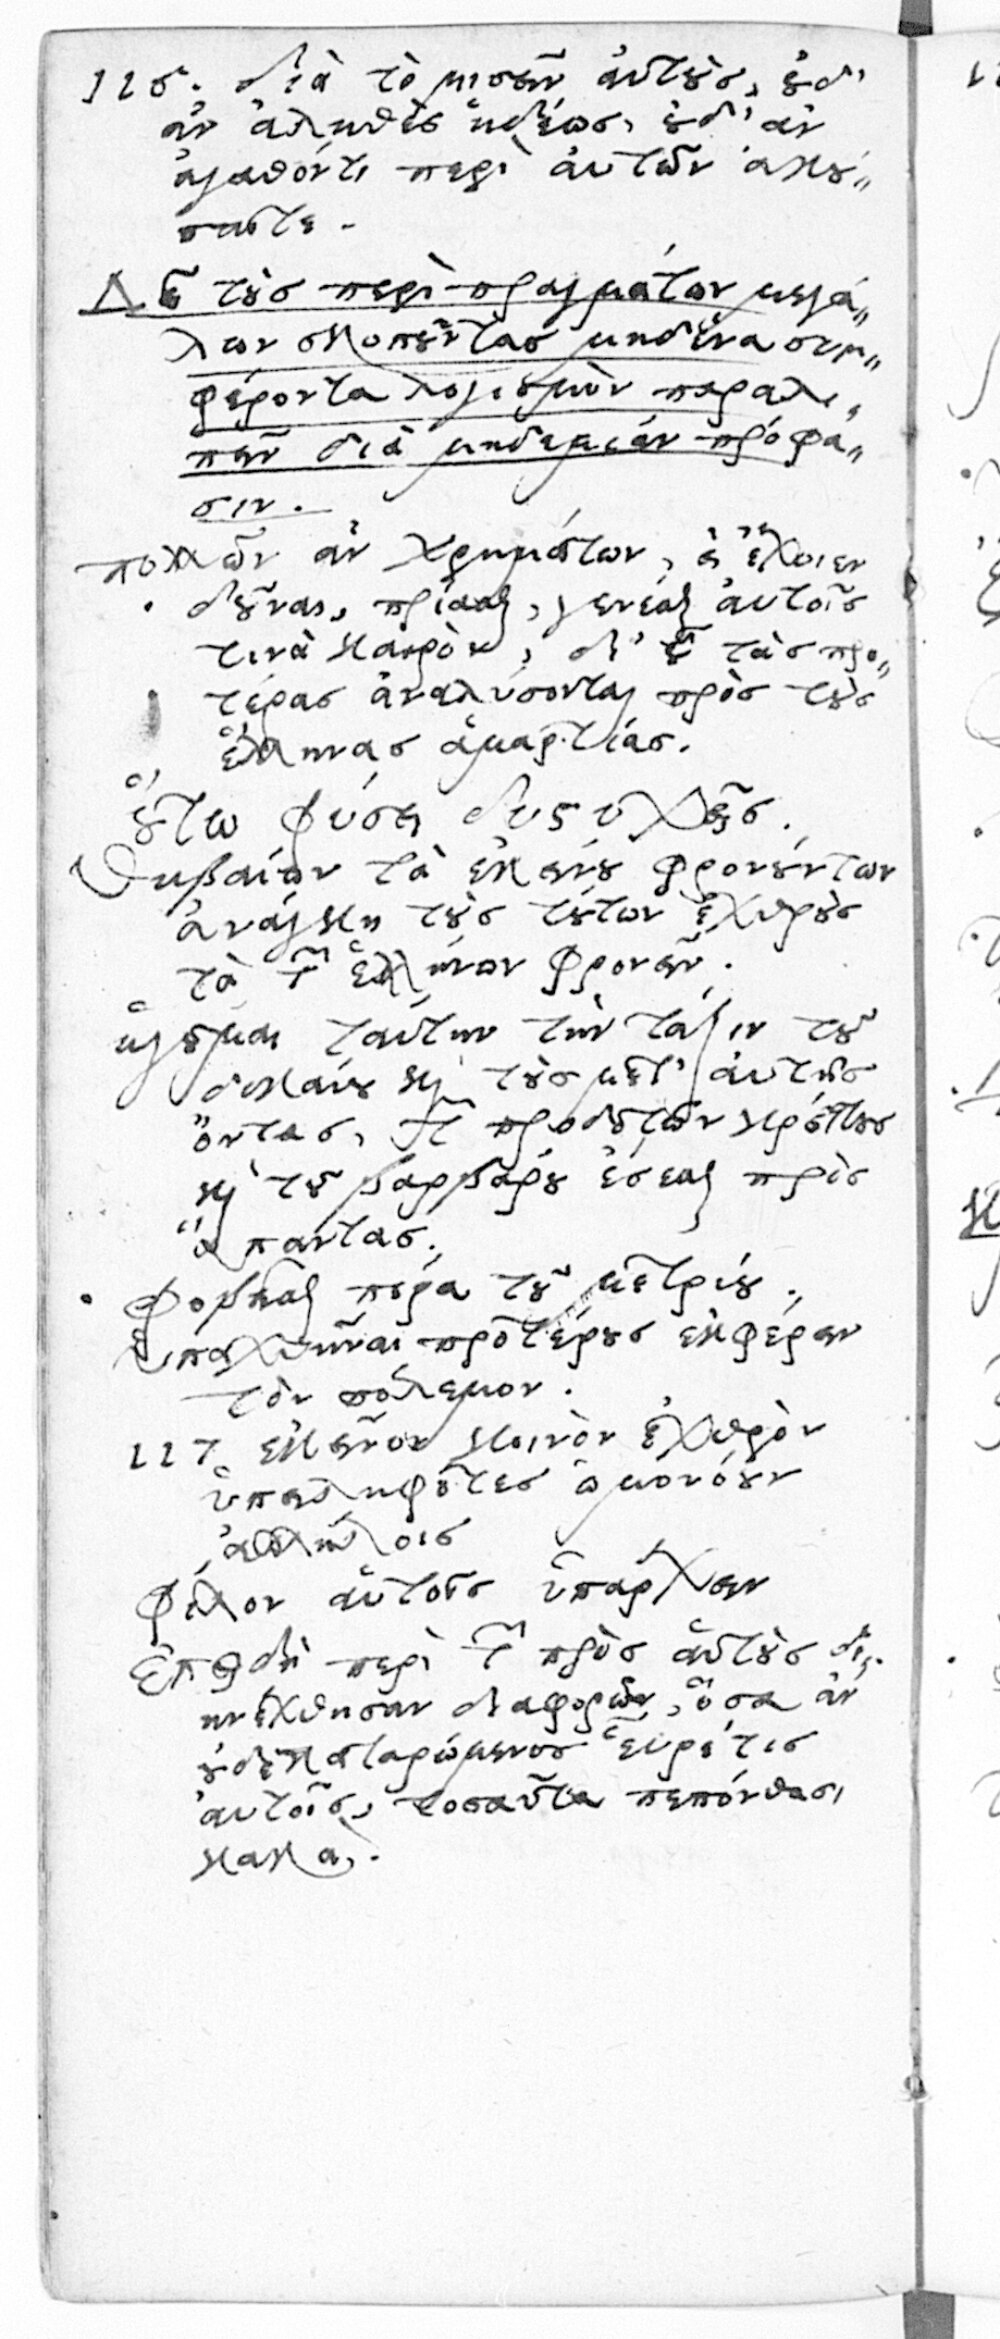 116. διὰ τὸ μισεῖν αὐτοὺς, οὐδ'
ἂν ἀληθὲς ἡδέως, οὐδ' ἂν
ἀγαθόν τι περὶ αὐτῶν ἀκού„
σαιτε.
Δεῖ τοὺς περὶ πραγμάτων μεγά„
λων σκοποῦντας μηδένα συμ„
φέροντα λογισμὸν παραλι„
πεῖν διὰ μηδεμιάν πρόφα„
σιν.
πολλῶν ἂν χρημάτων, εἰ ἔχοιεν
δοῦναι, πρίασθαι, γενέσθαι αὐτοῖς
τινὰ καιρὸν, δι' οὗ τὰς προ„
τέρας ἀναλύσονται πρὸς τοὺς
ἕλληνας ἁμαρτίας.
οὕτω φύσει δυστυχεῖς.
Θηβαίων τὰ ἐκείνου φρονούντων
ἀνάγκη τοὺς τούτων ἐχθροὺς
τὰ τῶν ἑλλήνων φρονεῖν.
ἡγοῦμαι ταύτην τὴν τάξιν τοῦ
δικαίου καὶ τοὺς μετ' αὐτῆς
ὄντας, τῶν προδοτῶν κρείττους
καὶ τοῦ βαρβάρου ἔσεσθαι πρὸς
ἅπαντας.
φοβεῖσθαι πέρα τοῦ μετρίου.
ὑπαχθῆναι προτέρους ἐκφέρειν
τὸν πόλεμον.
117 ἐκεῖνον κοινὸν ἐχθρὸν
ὑπειληφότες ὁμονόουν
ἀλλήλοις
φίλον αὐτοῖς ὑπάρχειν
Ἐπειδὴ περὶ τῶν πρὸς αὑτοὺς δι„
ηνέχθησαν διαφορῶν, ὅσα ἂν
οὐδὲ καταρώμενος εὗρέ τις
αὐτοῖς, τοσαῦτα πεπόνθασι
κακά.